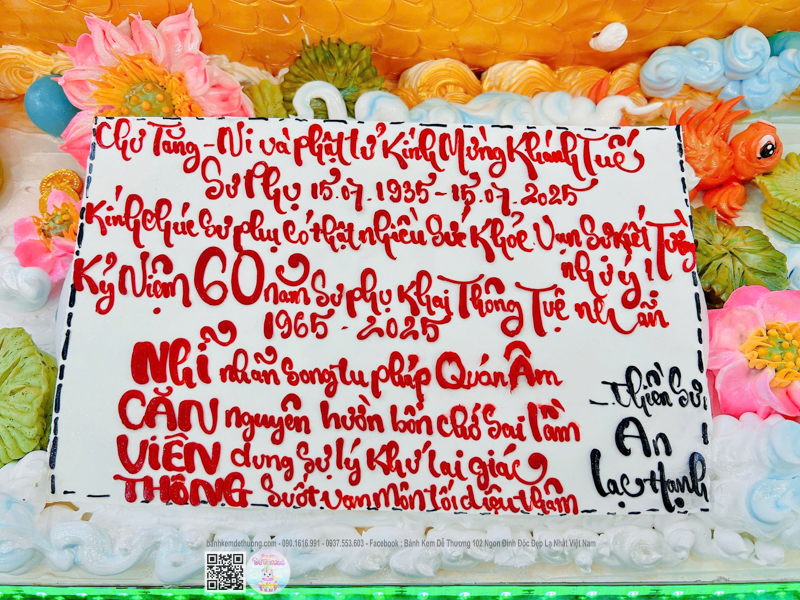 Chư Tăng - Ni và phật tử Kính Mừng Khánh Tuế
Sư Phụ 15.07.1935 - 15.07.2025
Kính chúc Sư phụ có thật nhiều Sức Khỏe. Vạn Sự Kiết Tường
như ý!
Kỷ Niệm 60 năm Sư phụ Khai Thông Tuệ nhãn
1965 - 2025
Nhĩ nhãn song tu pháp Quán Âm
CĂN nguyên hườn bổn chớ sai lầm
VIÊN dung Sự lý Khứ lai giác
THÔNG Suốt vạn môn tối diệu thâm
Thiền Sư
An
Lạc Hạnh
banhkemdethuong.com - 090.1616.991 - 0937.553.603 - Facebook : Bánh Kem Dễ Thương 102 Ngon Đỉnh Độc Đẹp Lạ Nhất Việt Nam